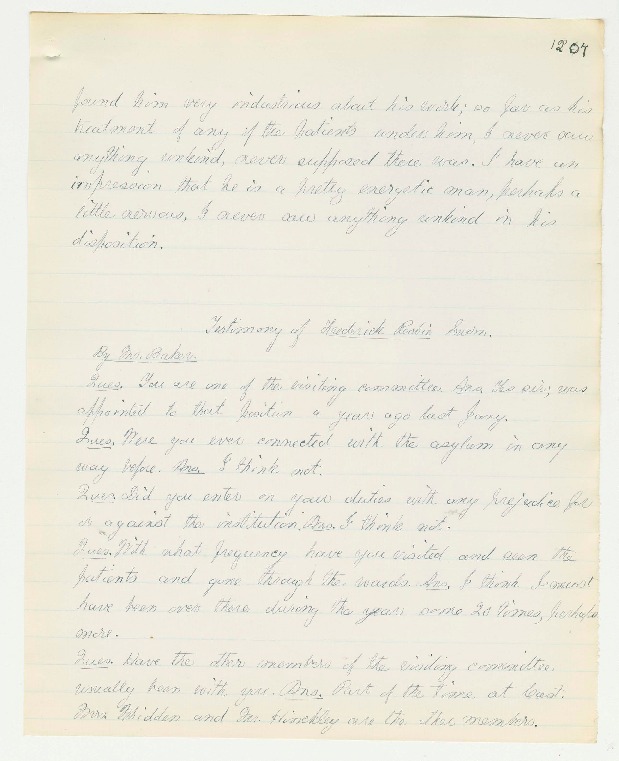 1204
found him very industrious about his work; so far as his
treatment of any of the patients under him, I never saw
anything unkind, never supposed there was. I have an
impression that he is a pretty energetic man, perhaps a
little nervous, I never saw anything unkind in his
disposition.
Testimony of Frederick Robie Sworn.
By Mr. Baker.
Ques. You are one of the visiting committee Ans. Yes sir; was
appointed to that position a years ago last Jany.
Ques. Were you ever connected with the asylum in any
way before. Ans. I think not.
Ques Did you enter on your duties with any prejudice for
or against the institution. Ans. I think not.
Ques. With what frequency have you visited and seen the
patients and gone through the wards. Ans. I think I must
have been over there during the year some 20 times, perhaps
more.
Ques. Have the other members of the visiting committee
usually been with you. Ans. Part of the time at least.
Whidden and Mr. Hinckley are the other members.